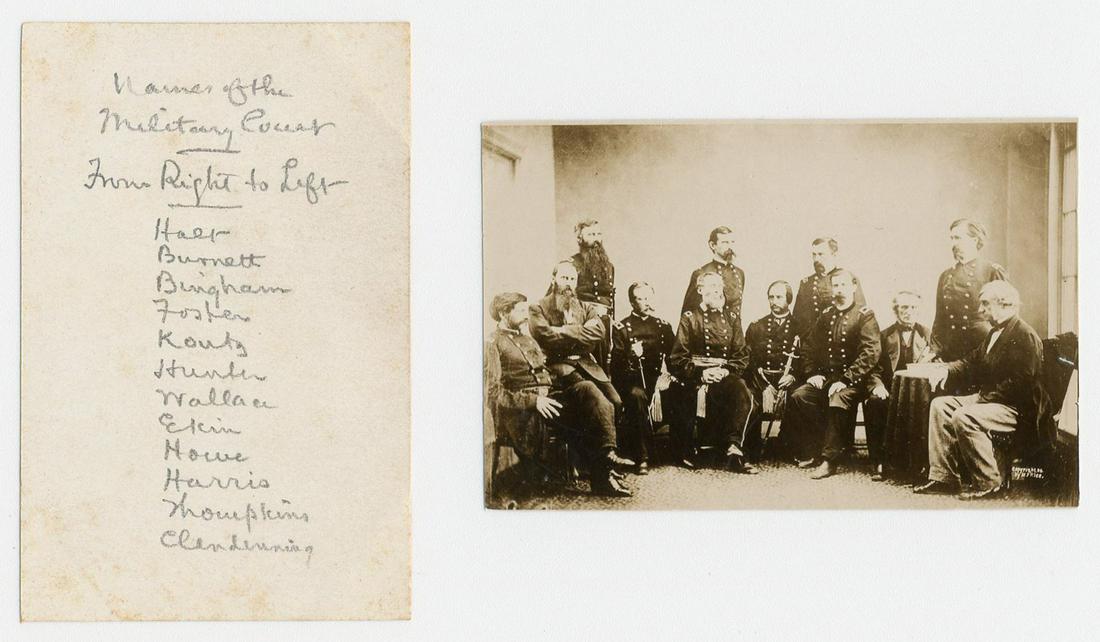 Names of the
Military Court
From Right to Left
Holt
Burnett
Bingham
Foster
Kautz
Hunter
Wallace
Ekin
Howe
Harris
Thompkins
Clendenning
Copyright